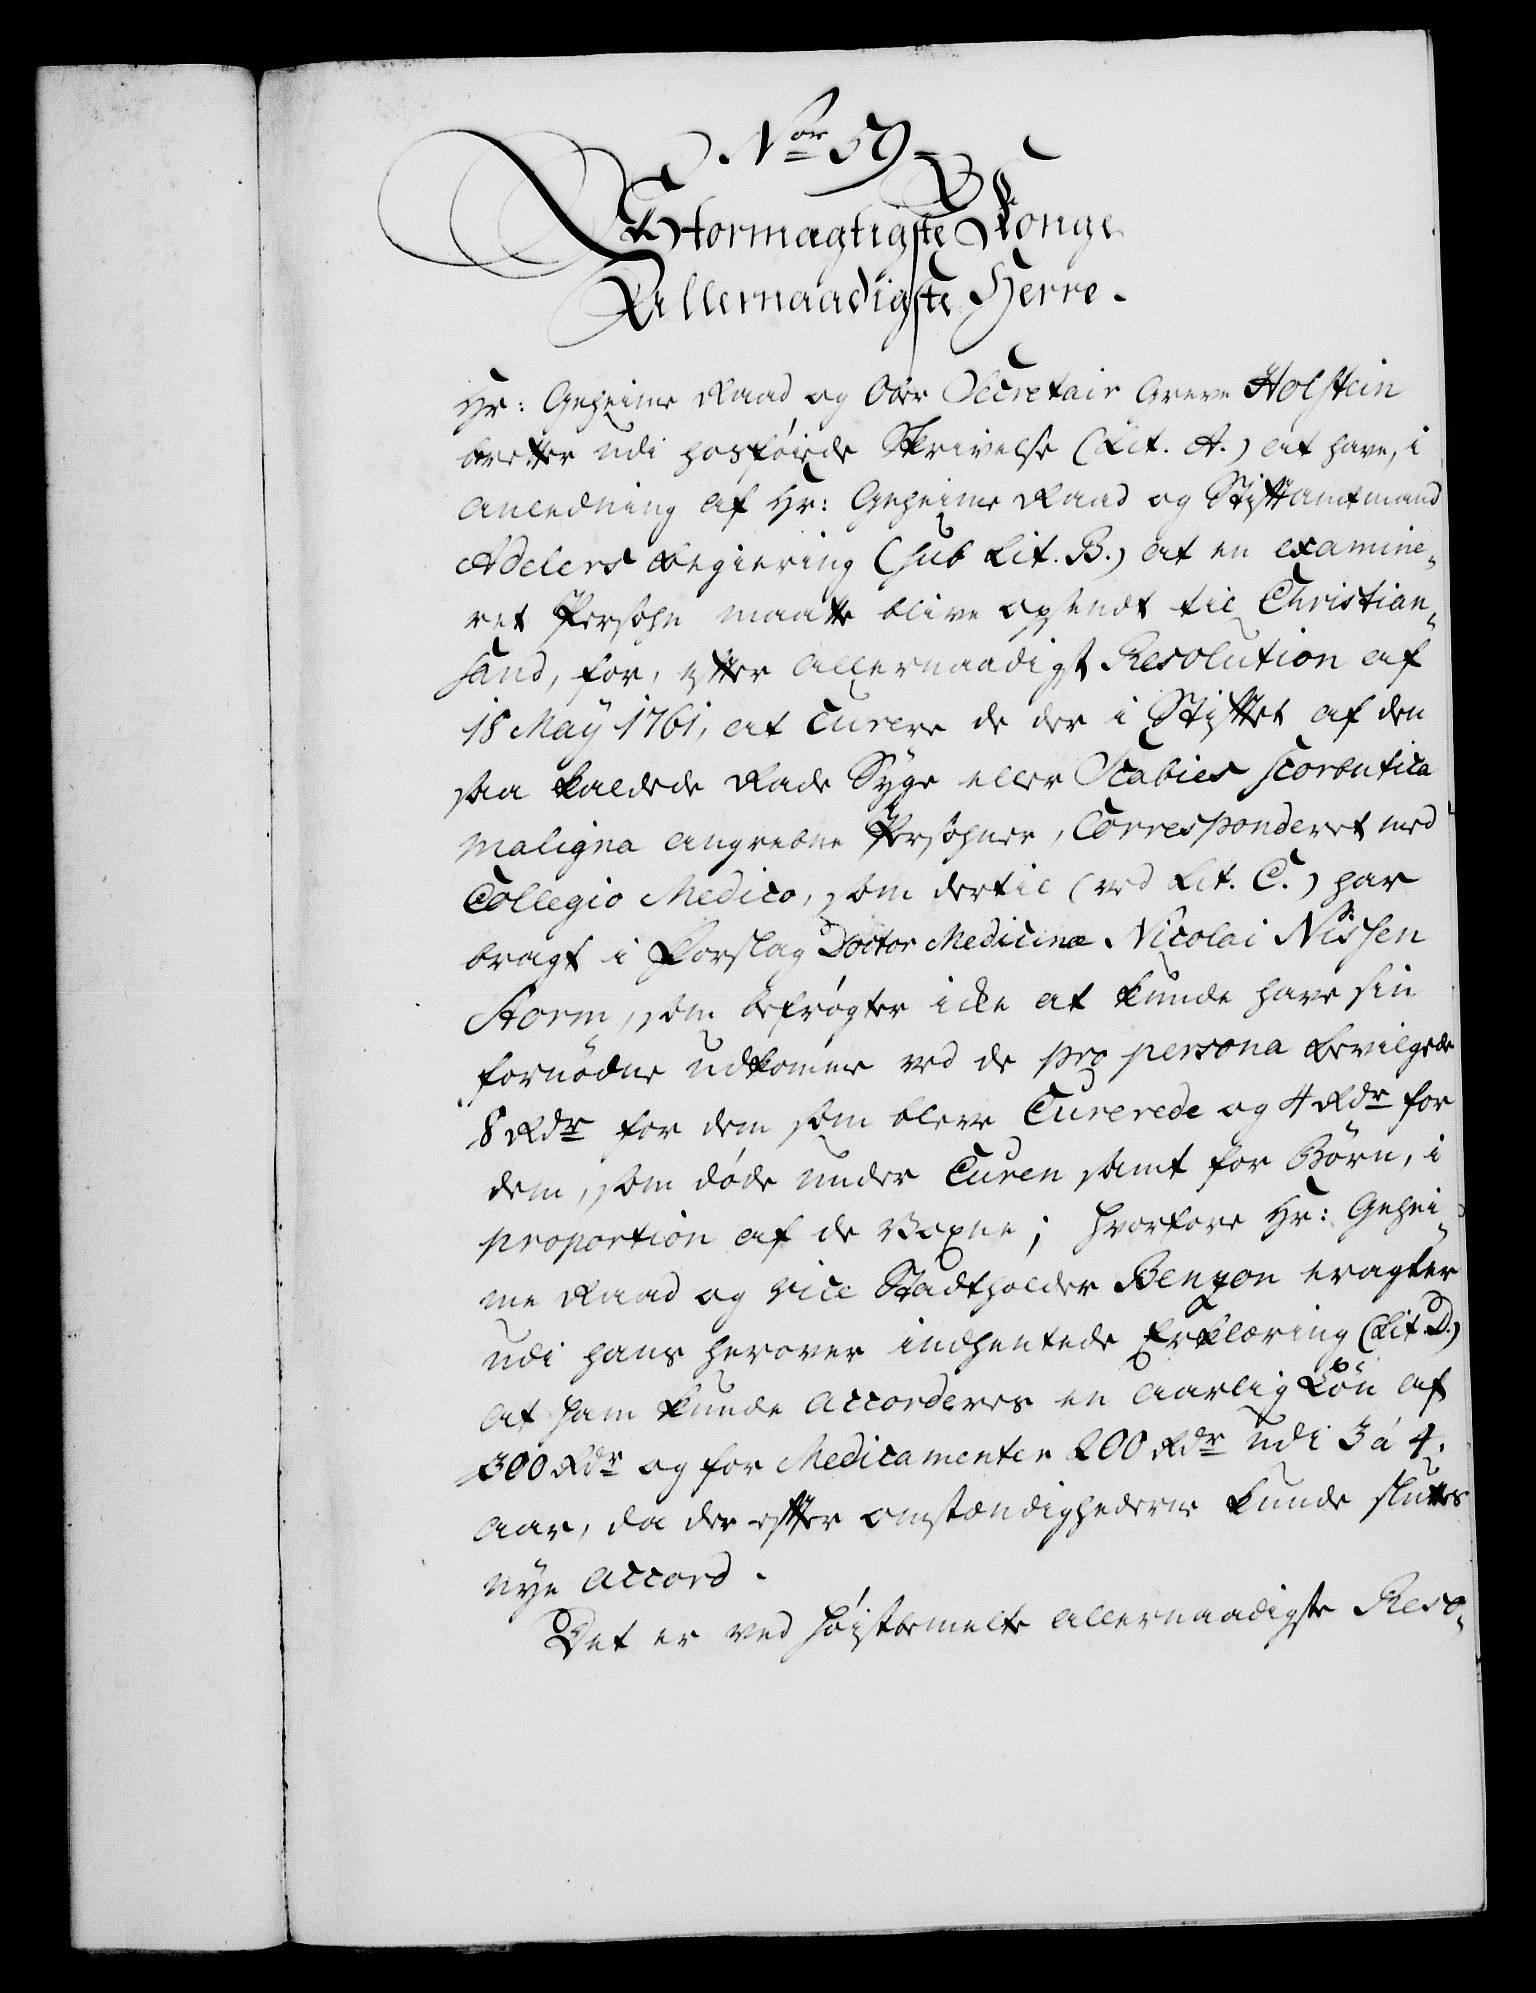 Nor 59
Stormagtigste Konge
Allernaadigste Herre.
Hr: Geheime Raad og Ober Secretair Greve Holstein
beretter udi hosföiede Skrivelse (Lit. A.) at have, i
anledning af Hr: Geheime Raad og Stiftamtmand
Adelers begiering (sub Lit. B.) at en examine-
ret Persohn maatte blive opsendt til Christian-
sand, for, efter allernaadigst Resolution af
18 May 1761, at curere de der i Stiftet af den
saa kaldede Rade Syge eller Scabies scorbutica
maligna angrebne Persohner, Corresponderet med
Collegio Medico, som dertil (ved Lit. C.) har
bragt i Forslag Doctor Medicinæ Nicolai Nissen
Storm, som befrögter icke at kunde have sin
fornödne udkomme ved de pro persona bevilgede
8 Rdr for dem som bleve Curerede og 4 Rdr for
dem, som döde under Curen samt for Börn, i
proportion af de Voxne; hvorfore Hr: Gehei-
me Raad og Vice Stadtholder Benzon eragter
udi hans herover indhentede Erklæring (Lit. D.)
at ham kunde accorderes en aarlig Lön af
300 Rdr og for Medicamenter 200 Rdr udi 3 á 4.
aar, da der efter omstændighederne kunde sluttes
nye accord.
Det er ved höistbemelte allernaadigste Reso-